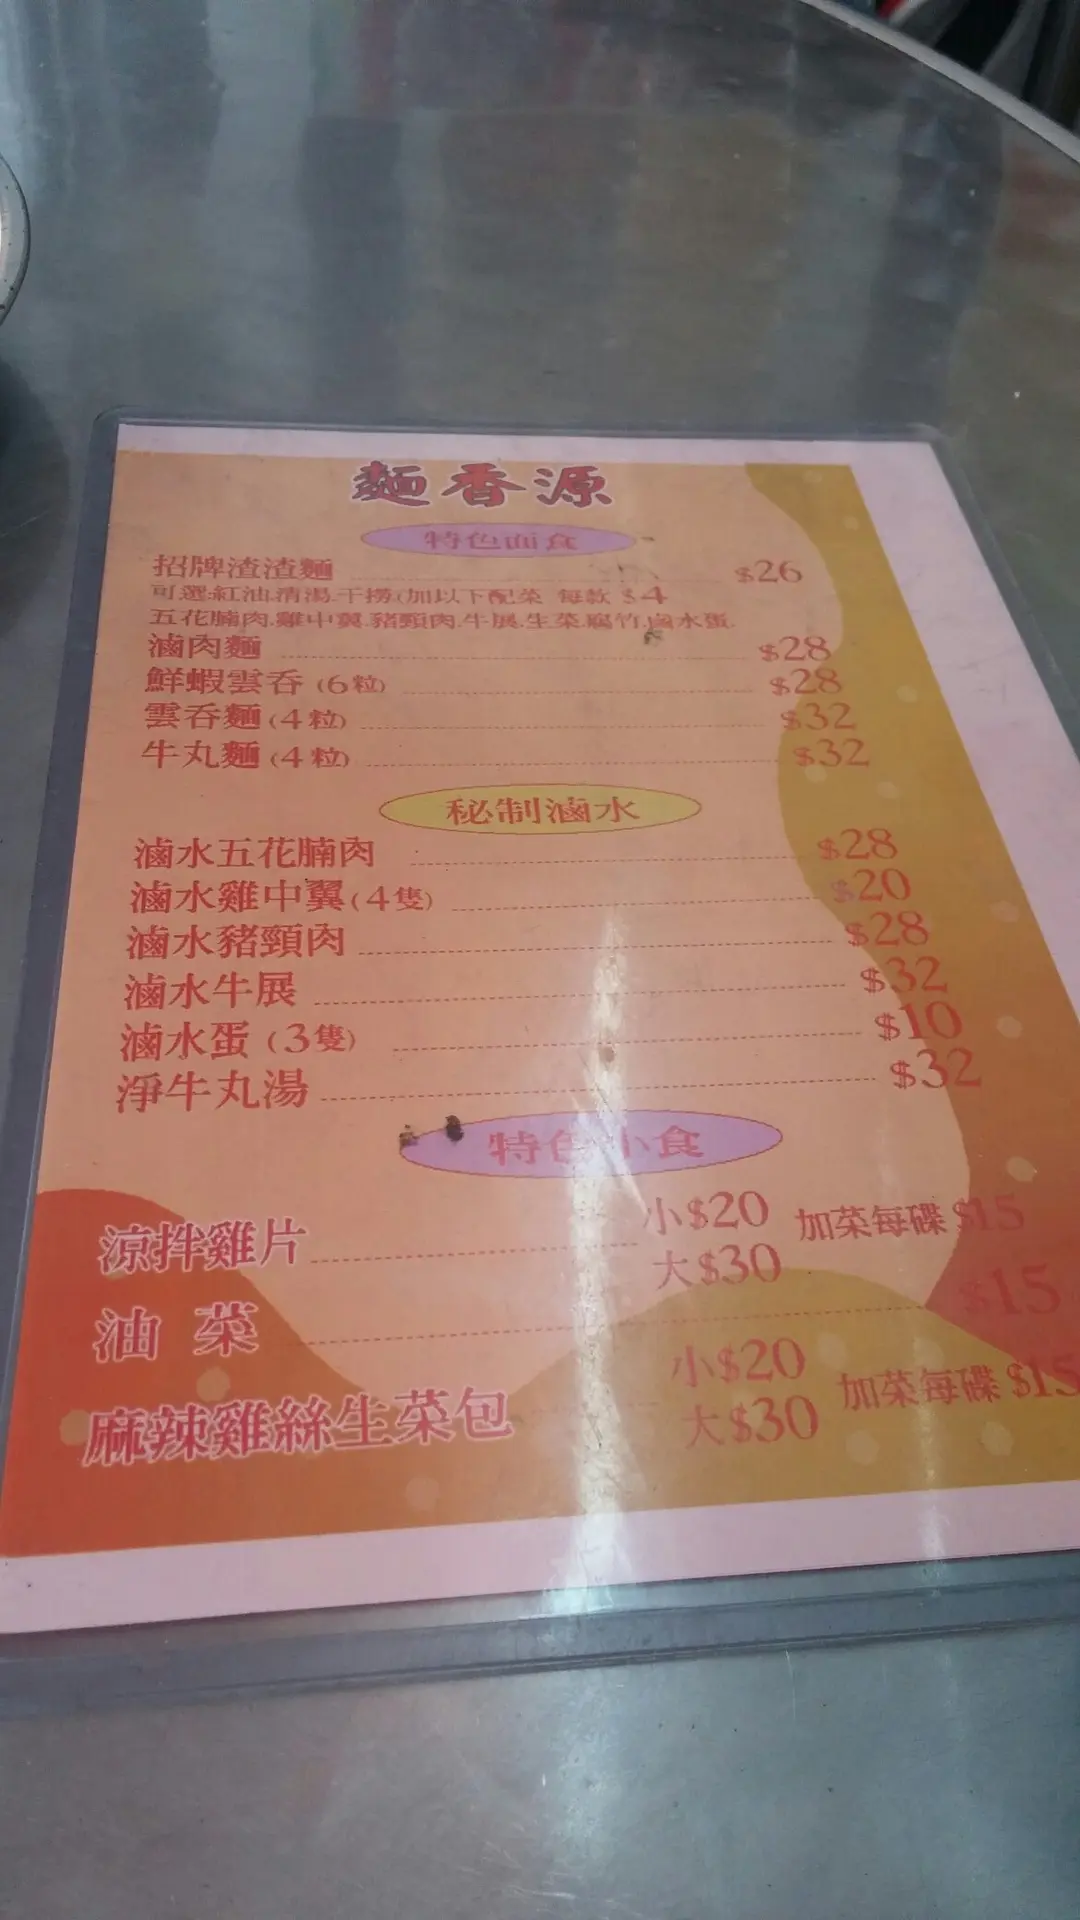 麵香源
特色面食
招牌渣渣麵 $26
可選:紅油.清湯.干撈(加以下配菜 每款 $4
五花腩肉.雞中翼.豬頸肉.牛展.生菜.腐竹.鹵水蛋.
滷肉麵 $28
鮮蝦雲吞 (6粒) $28
雲吞麵 (4粒) $32
牛丸麵 (4粒) $32
秘制滷水
滷水五花腩肉 $28
滷水雞中翼 (4隻) $20
滷水豬頸肉 $28
滷水牛展 $32
滷水蛋 (3隻) $10
淨牛丸湯 $32
特色小食
涼拌雞片 小$20 加菜每碟 $15
大$30
油 菜 $15
麻辣雞絲生菜包 小$20 加菜每碟 $15
大$30